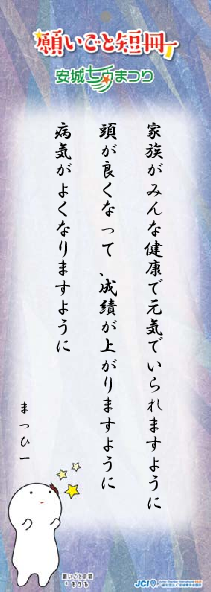 願いごと短冊
安城七夕まつり
家族がみんな健康で元気でいられますように
頭が良くなって、成績が上がりますように
病気がよくなりますように
まつひー
願いごと妖精
きーぼー
JCI